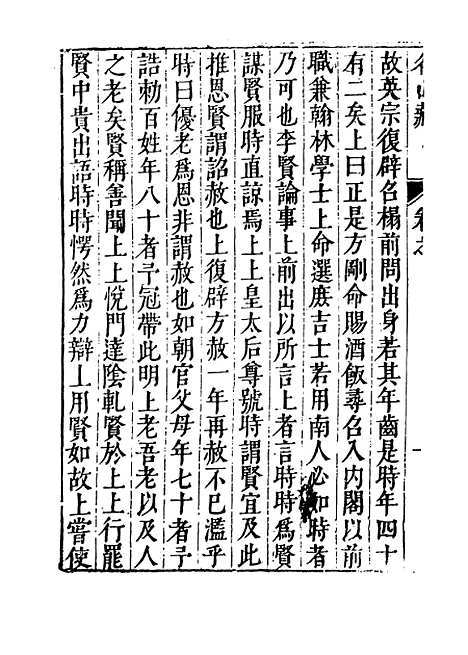 名山藏
卷之
一
故英宗復辟召榻前問出身若其年齒是時年四十
有二矣上曰正是方剛命賜酒飯尋召入內閣以前
職兼翰林學士上命選庶吉士若用南人必如時者
乃可也李賢論事上前出以所言上者言時時為賢
謀賢服時直諒焉上上皇太后尊號時謂賢宜及此
推恩賢謂詔赦也上復辟方赦一年再赦不已濫乎
時曰優老為恩非謂赦也如朝官父母年七十者予
誥勅百姓年八十者予冠帶此明上老吾老以及人
之老矣賢稱善聞上上悅門達陰軋賢於上上行罷
賢中貴出語時時愕然為力辯上用賢如故上嘗使